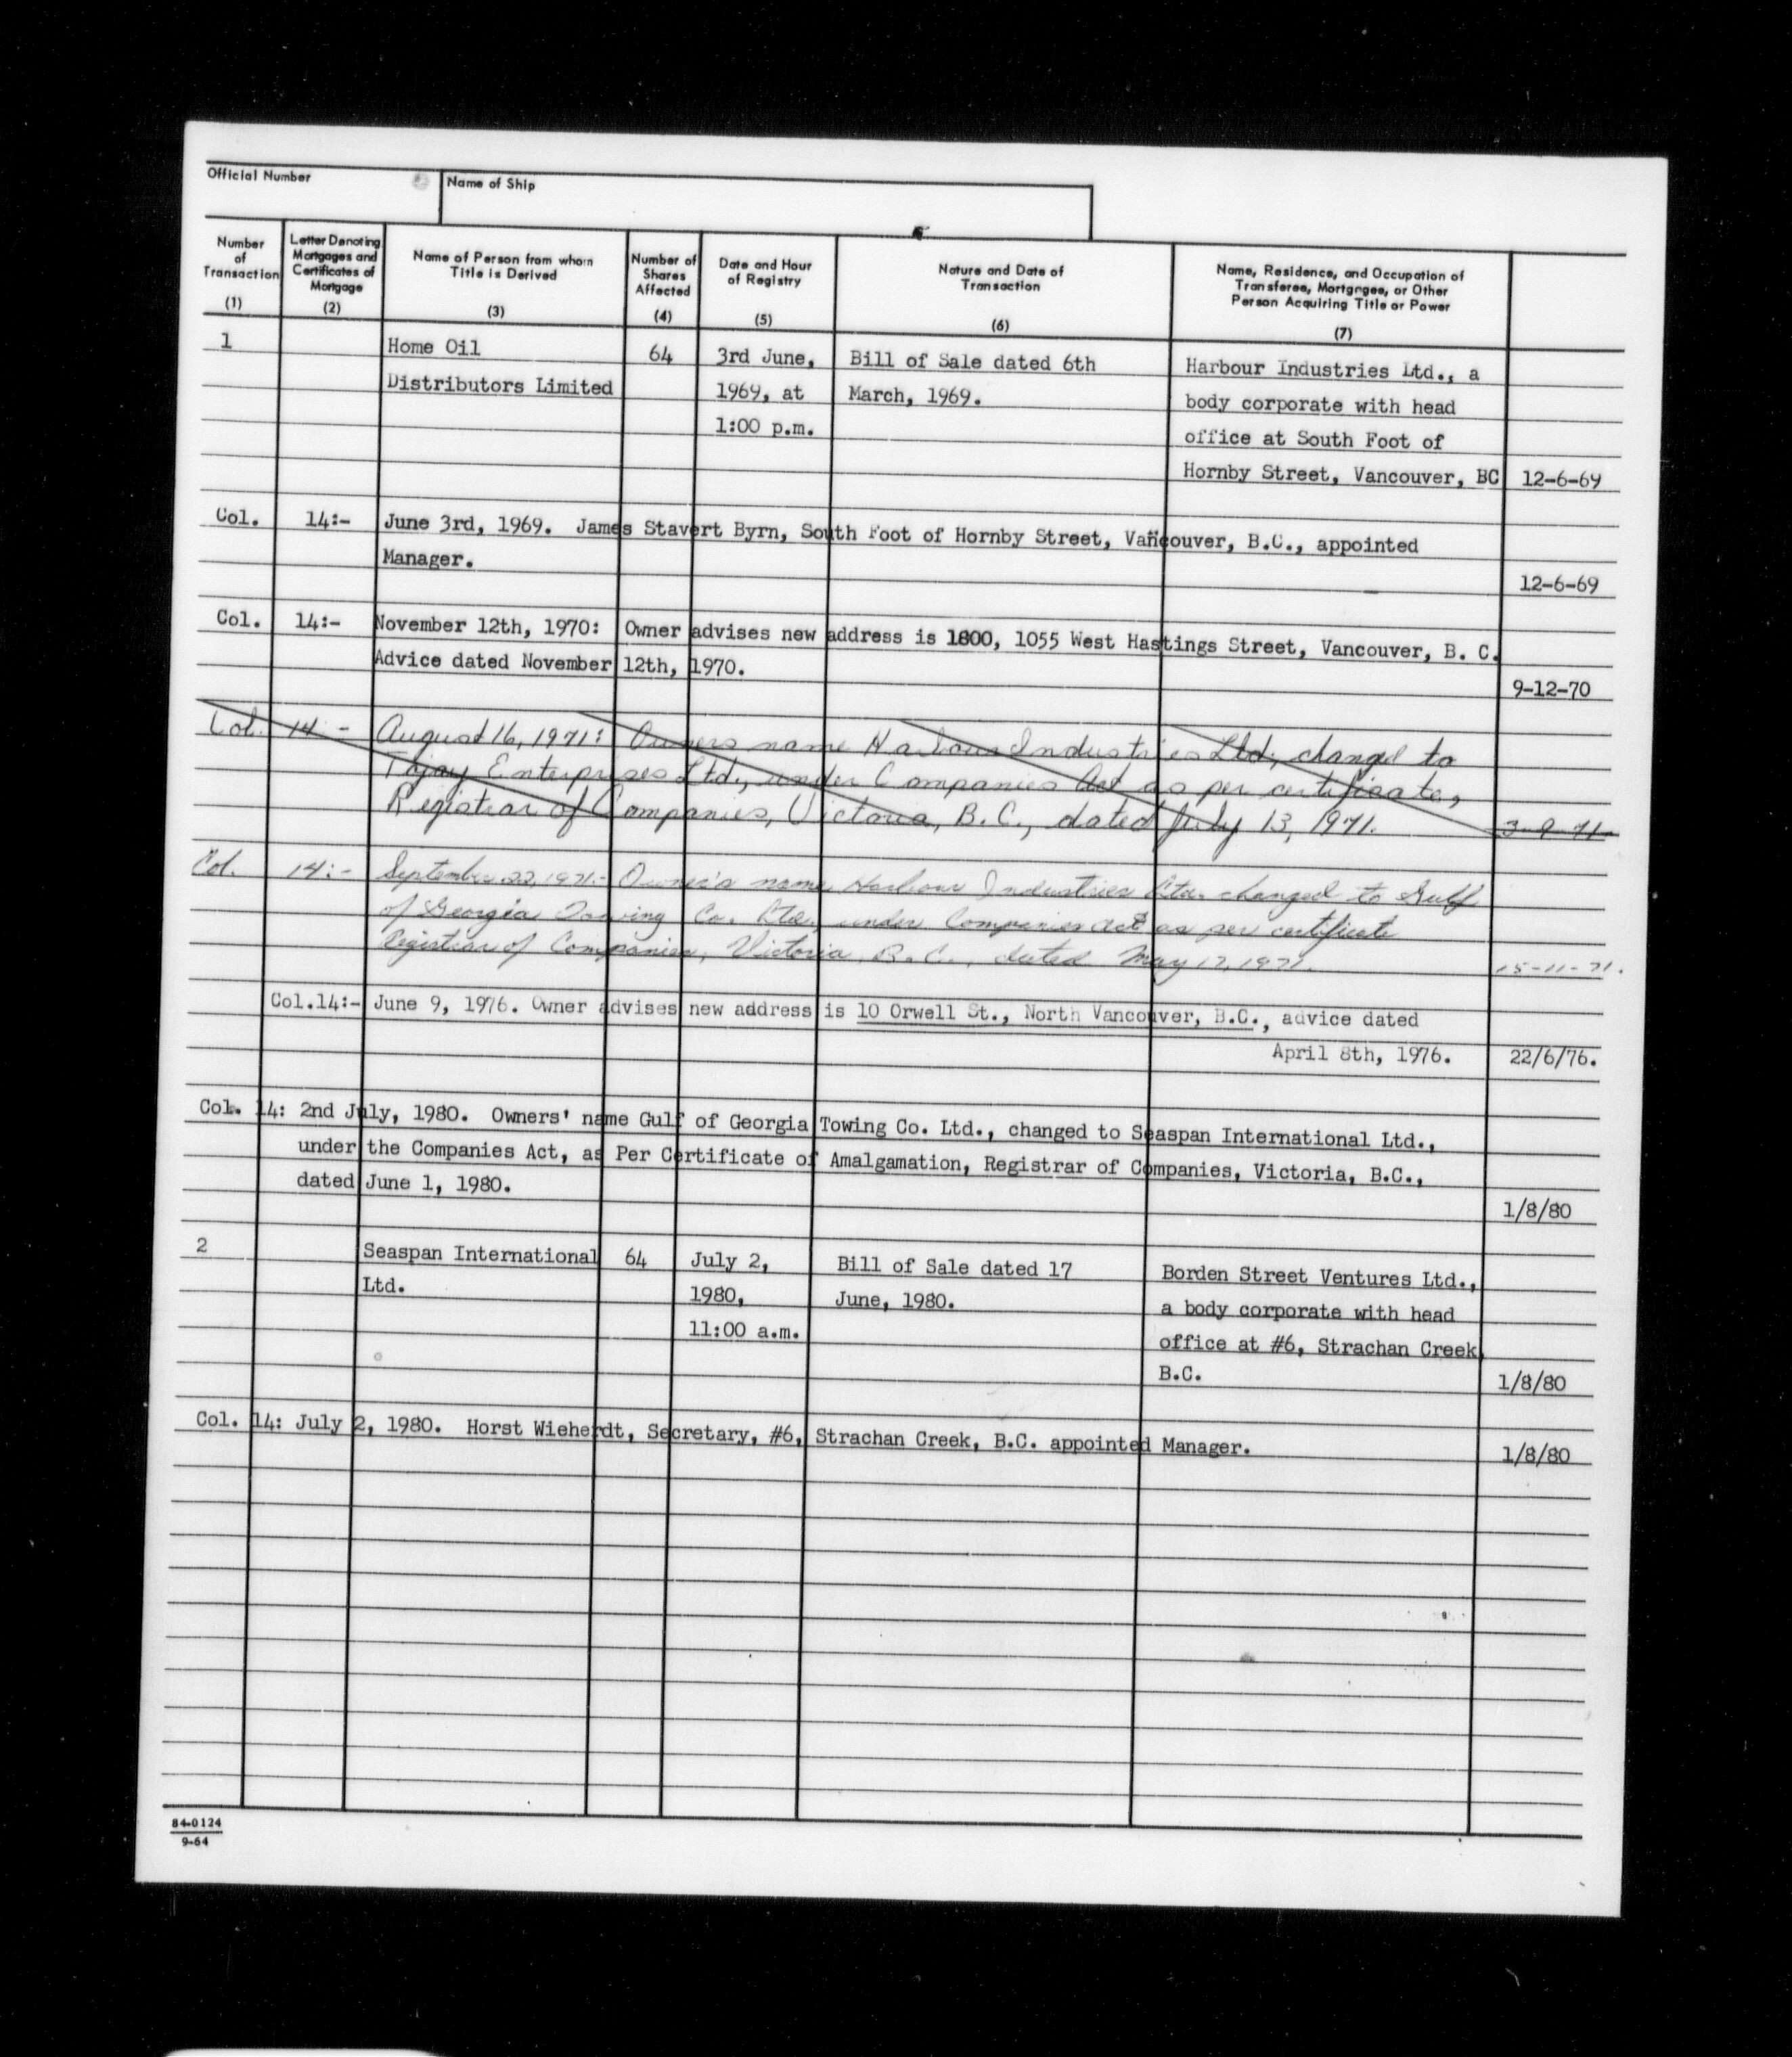 Official Number
Name of Ship
Number of Transaction (1)
Letter Denoting Mortgages and Certificates of Mortgage (2)
Name of Person from whom Title is Derived (3)
Number of Shares Affected (4)
Date and Hour of Registry (5)
Nature and Date of Transaction (6)
Name, Residence, and Occupation of Transferee, Mortgagee, or Other Person Acquiring Title or Power (7)
1 Home Oil 64 3rd June, Bill of Sale dated 6th Harbour Industries Ltd., a
Distributors Limited 1969, at March, 1969. body corporate with head
1:00 p.m. office at South Foot of
Hornby Street, Vancouver, BC 12-6-69
Col. 14:- June 3rd, 1969. James Stavert Byrn, South Foot of Hornby Street, Vancouver, B.C., appointed
Manager.
12-6-69
Col. 14:- November 12th, 1970: Owner advises new address is 1800, 1055 West Hastings Street, Vancouver, B. C.
Advice dated November 12th, 1970.
9-12-70
Col. 14 - August 16, 1971: Owners name Harbour Industries Ltd, changed to
Tojay Enterprises Ltd., under Companies Act as per certificate,
Registrar of Companies, Victoria, B.C., dated July 13, 1971. 3-9-71
Col. 14:- September 22, 1971:- Owner's name Harbour Industries Ltd. changed to Gulf
of Georgia Towing Co. Ltd. under Companies Act as per certificate
Registrar of Companies, Victoria, B.C., dated May 17, 1971. 15-11-71.
Col.14:- June 9, 1976. Owner advises new address is 10 Orwell St., North Vancouver, B.C., advice dated
April 8th, 1976. 22/6/76.
Col. 14: 2nd July, 1980. Owners' name Gulf of Georgia Towing Co. Ltd., changed to Seaspan International Ltd.,
under the Companies Act, as Per Certificate of Amalgamation, Registrar of Companies, Victoria, B.C.,
dated June 1, 1980.
1/8/80
2 Seaspan International 64 July 2, Bill of Sale dated 17 Borden Street Ventures Ltd.,
Ltd. 1980, June, 1980. a body corporate with head
11:00 a.m. office at #6, Strachan Creek
B.C. 1/8/80
Col. 14: July 2, 1980. Horst Wieherdt, Secretary, #6, Strachan Creek, B.C. appointed Manager. 1/8/80
84-0124
9-64